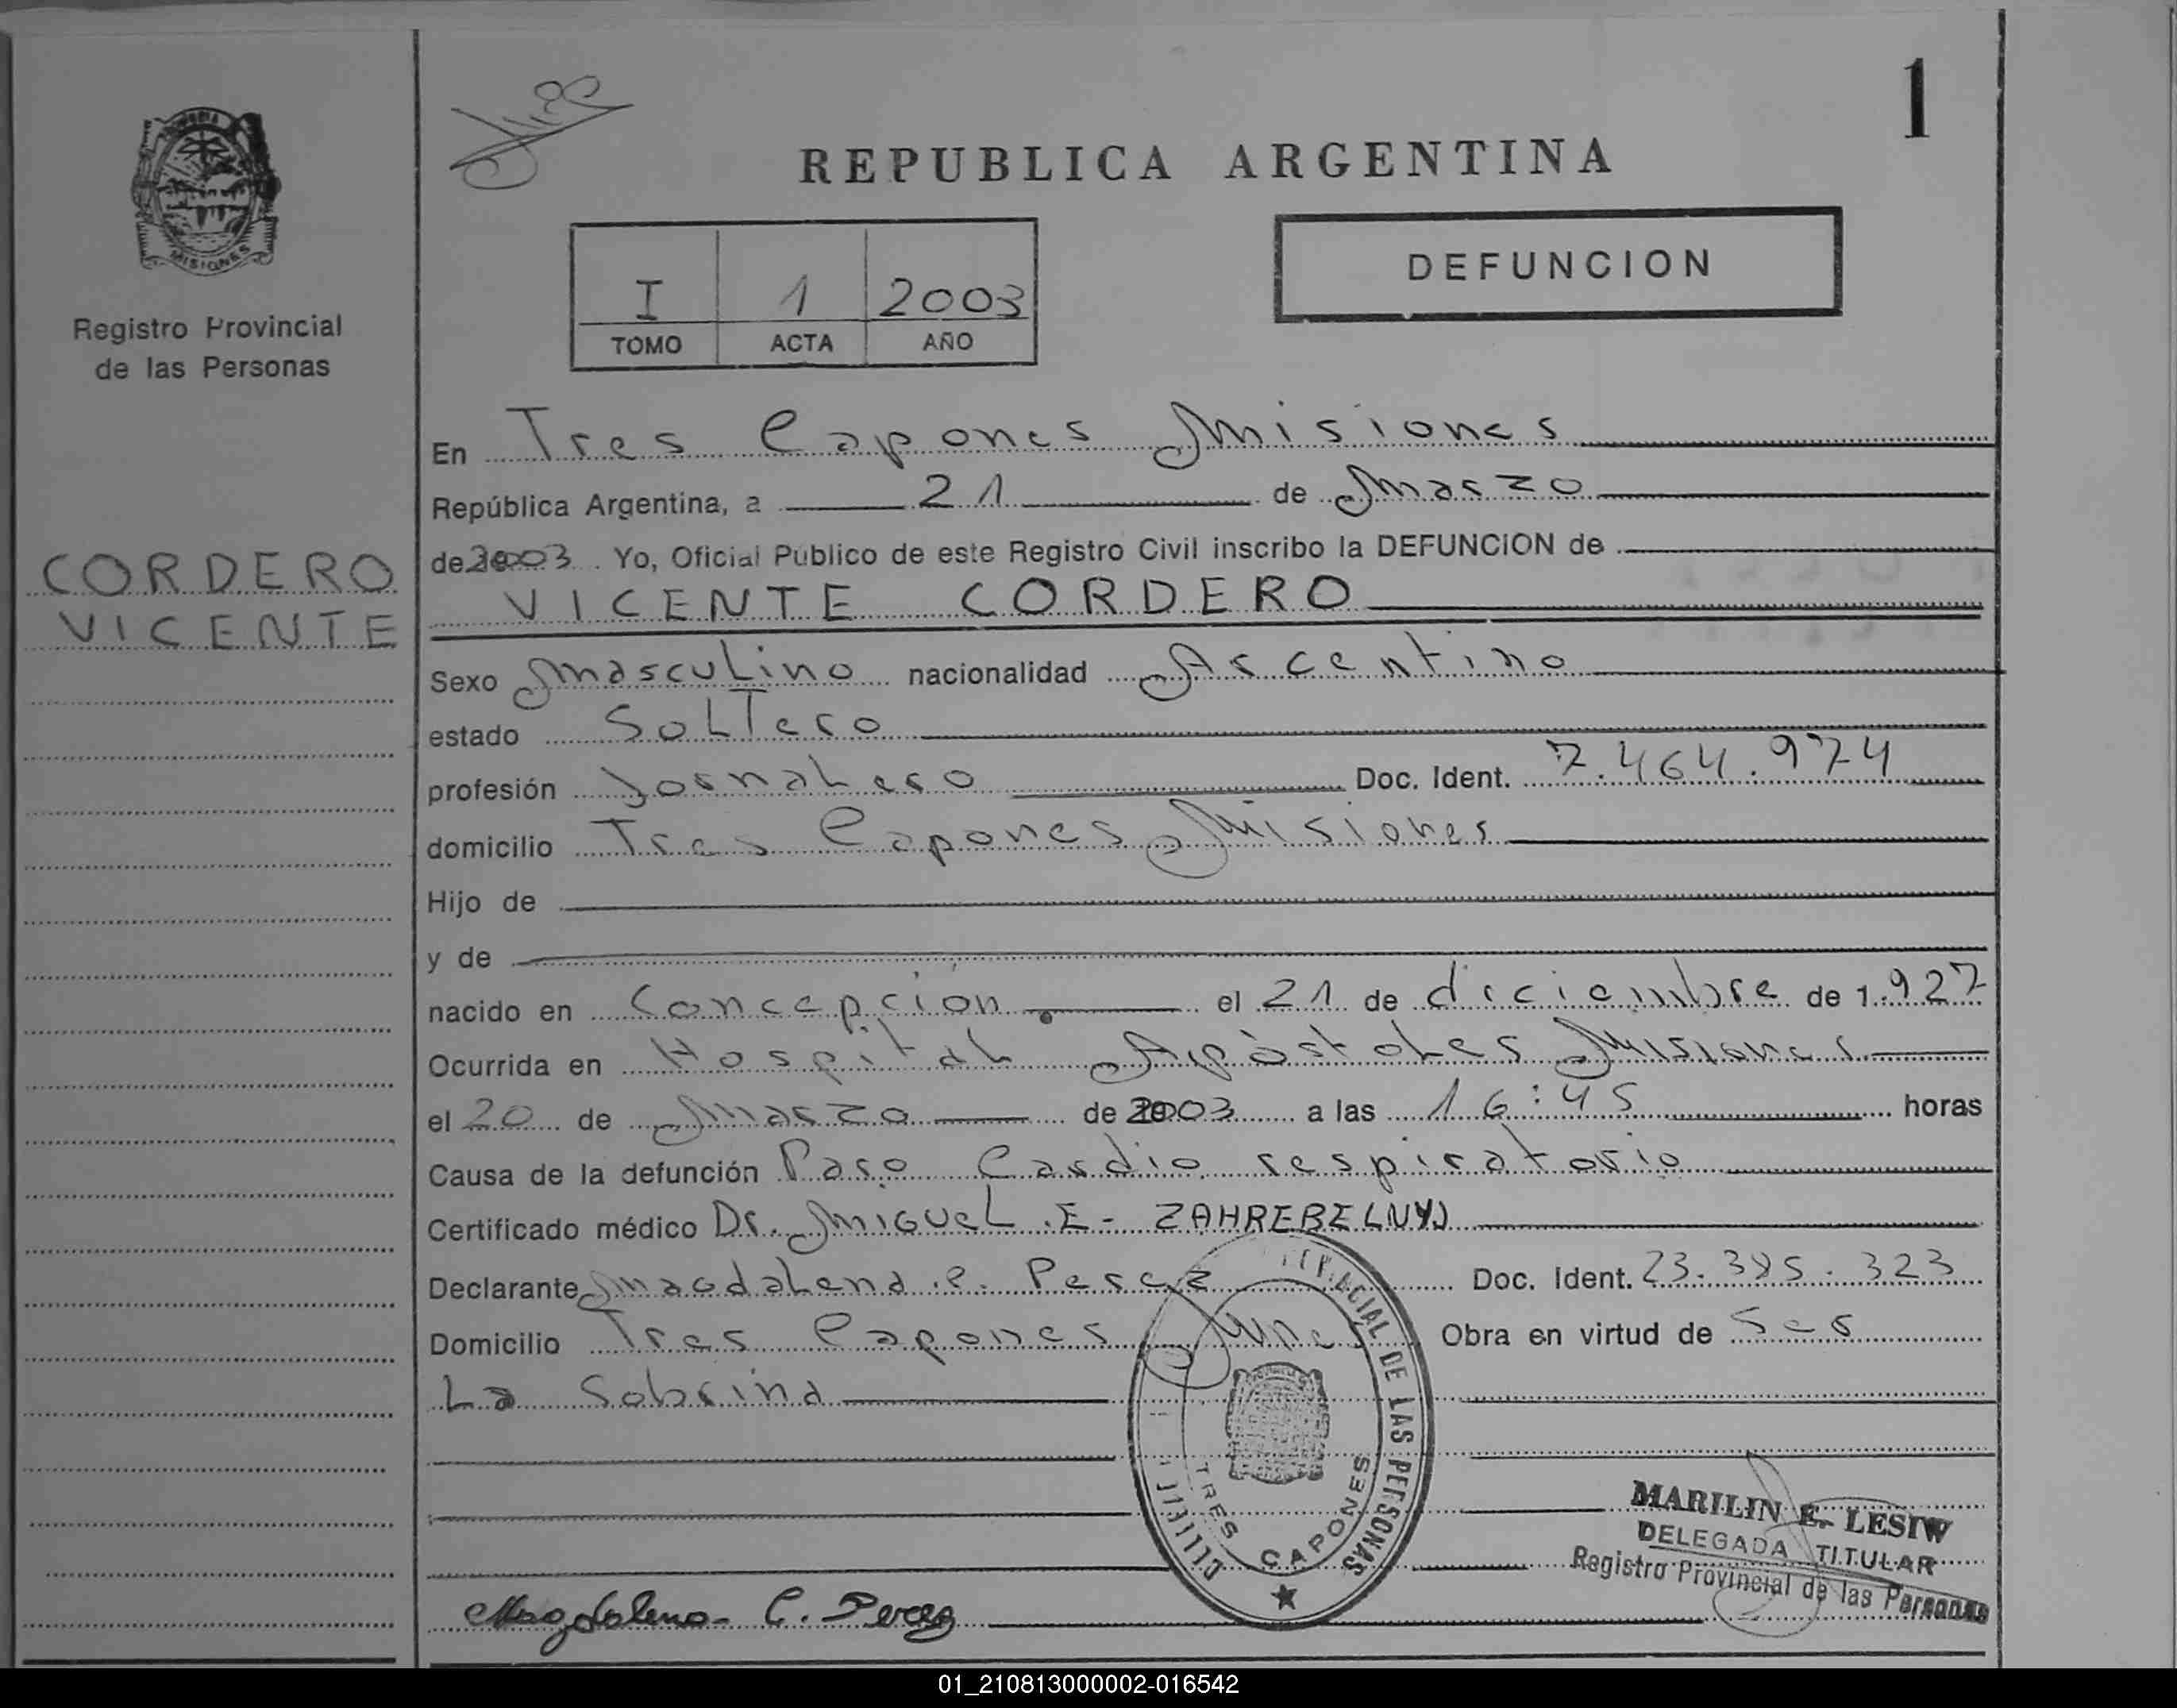 1
REPUBLICA ARGENTINA
MISIONES
Registro Provincial
de las Personas
CORDERO
VICENTE
I 1 2003
TOMO ACTA AÑO
DEFUNCION
En Tres Capones Misiones
República Argentina, a 21 de Marzo
de 2003. Yo, Oficial Público de este Registro Civil inscribo la DEFUNCION de
VICENTE CORDERO
Sexo Masculino nacionalidad Argentino
estado Soltero
profesión Jornalero Doc. Ident. 7.464.974
domicilio Tres Capones Misiones
Hijo de
y de
nacido en Concepción el 21 de diciembre de 1.927
Ocurrida en Hospital Apóstoles Misiones
el 20 de Marzo de 2003 a las 16:45 horas
Causa de la defunción Paro Cardio respiratorio
Certificado médico Dr. Miguel E- ZAHREBELNYJ
Declarante Magdalena C. Perez Doc. Ident. 23.395.323
Domicilio Tres Capones Mnes Obra en virtud de Ser
La Sobrina
DE LAS PERSONAS
TRES CAPONES
MARILIN E. LESIW
DELEGADA TITULAR
Registro Provincial de las Personas
Magdalena C. Perez
01_210813000002-016542